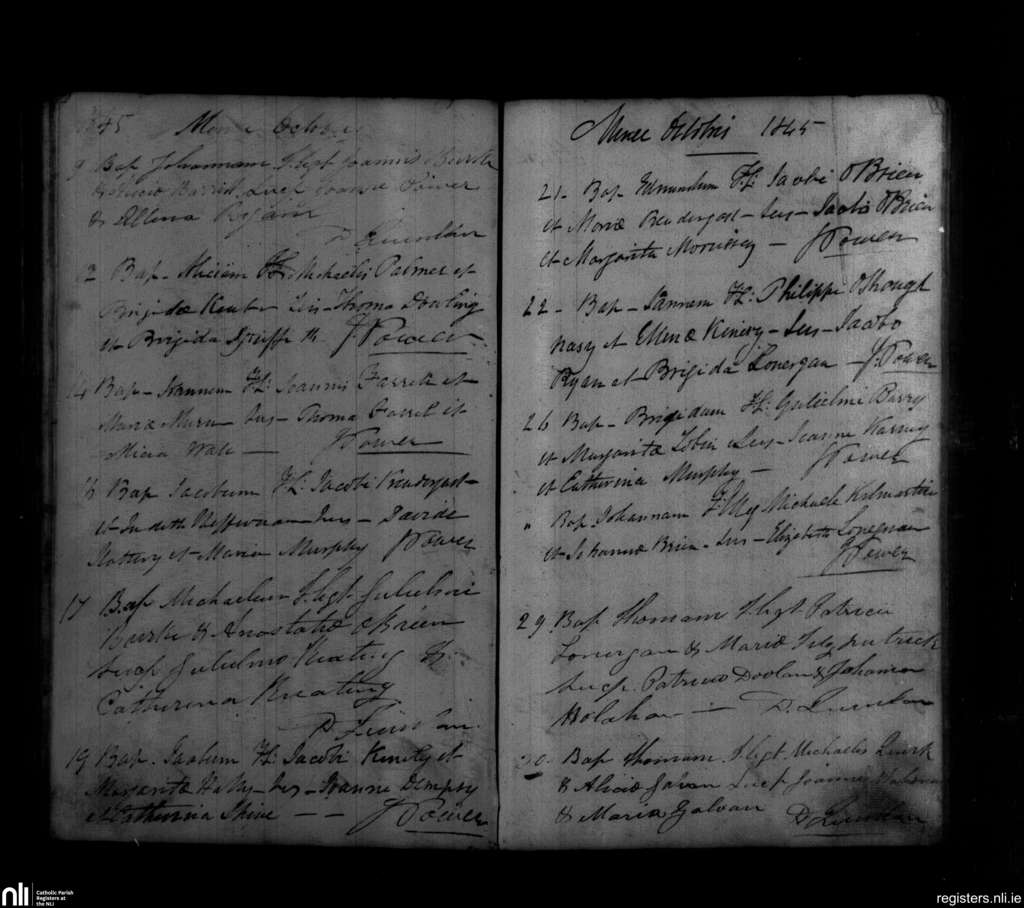 1845 Mense Octobris
9 Bap Johannam F. legt Joannis Bourke
& Aliciæ Susp Joanne Power
& Ellena Ryan
D Quinlan
12 Bap - F L: Michaelis Palmer et
Brigidæ Sus - Thoma Dowling
et Brigida Griffith J Power
14 Bap - Joannem FL: Joannis Farrell et
Mariæ Sus - Thoma Farrel et
Maria Wall — J Power
Bap Jacobum FL: Jacobi Prendergast -
et Judith Heffernan - Sus - Davide
Slattery et Maria Murphy J Power
17 Bap Michaelem F. legt Gulielmi
Bourke & Anastatiæ OBrien
Susp Gulielmo Keating &
Catherina Keating
D Quinlan
19 Bap. Jacobum FL: Jacobi et
Margaritæ Hally - Sus - Joanne Dempsy
et Catherina Shine — — J Power
Mense Octobris 1845
21 - Bap Edmundum FL: Jacobi OBrien
et Mariæ Prendergast - Sus - Jacobo OBrien
et Margarita Morrissey — J Power
22 - Bap - Joannem FL: Philippi OShough
nasy et Ellenæ Kenery - Sus - Jacobo
Ryan et Brigida Lonergan — J: Power
26 Bap - Brigidam FL: Gulielmi Barry
et Margaritæ Tobin Sus - Joanne
et Catherina Murphy — J Power
" Bap Johannam F. Illeg Michaele Kilmartin
et Johannæ Brien - Sus - Elizabeth Lonergan
J Power
29 Bap Thomam F. legt. Patricii
Lonergan & Mariæ Fitzpatrick
Susp. Patricio Doolan & Johanna
Holahan — D. Quinlan
30 Bap Thomam F. legt Michaelis Quirk
& Aliciæ Galvan Susp Joanne
& Maria Galvan D Quinlan
nli Catholic Parish
Registers at
the NLI
registers.nli.ie